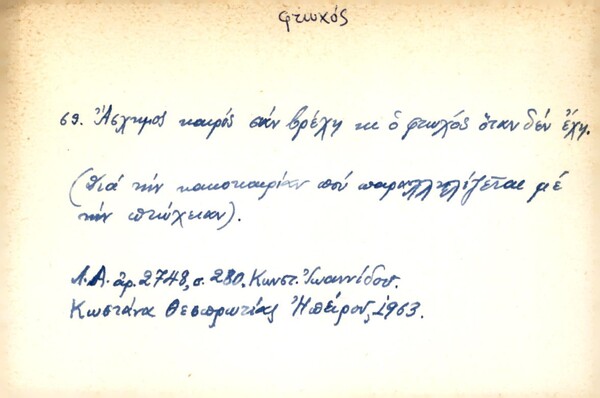 φτωχός
69. Ἄσχημος καιρός σάν βρέχῃ κι ὁ φτωχός ὅταν δέν ἔχῃ.
(Διά τήν κακοκαιρίαν πού παραλληλίζεται μέ
τήν πτώχειαν).
Λ.Α. ἀρ. 2748, σ. 280, Κωνστ. Ἰωαννίδου.
Κωστάνα Θεσπρωτίας Ἠπείρου, 1963.